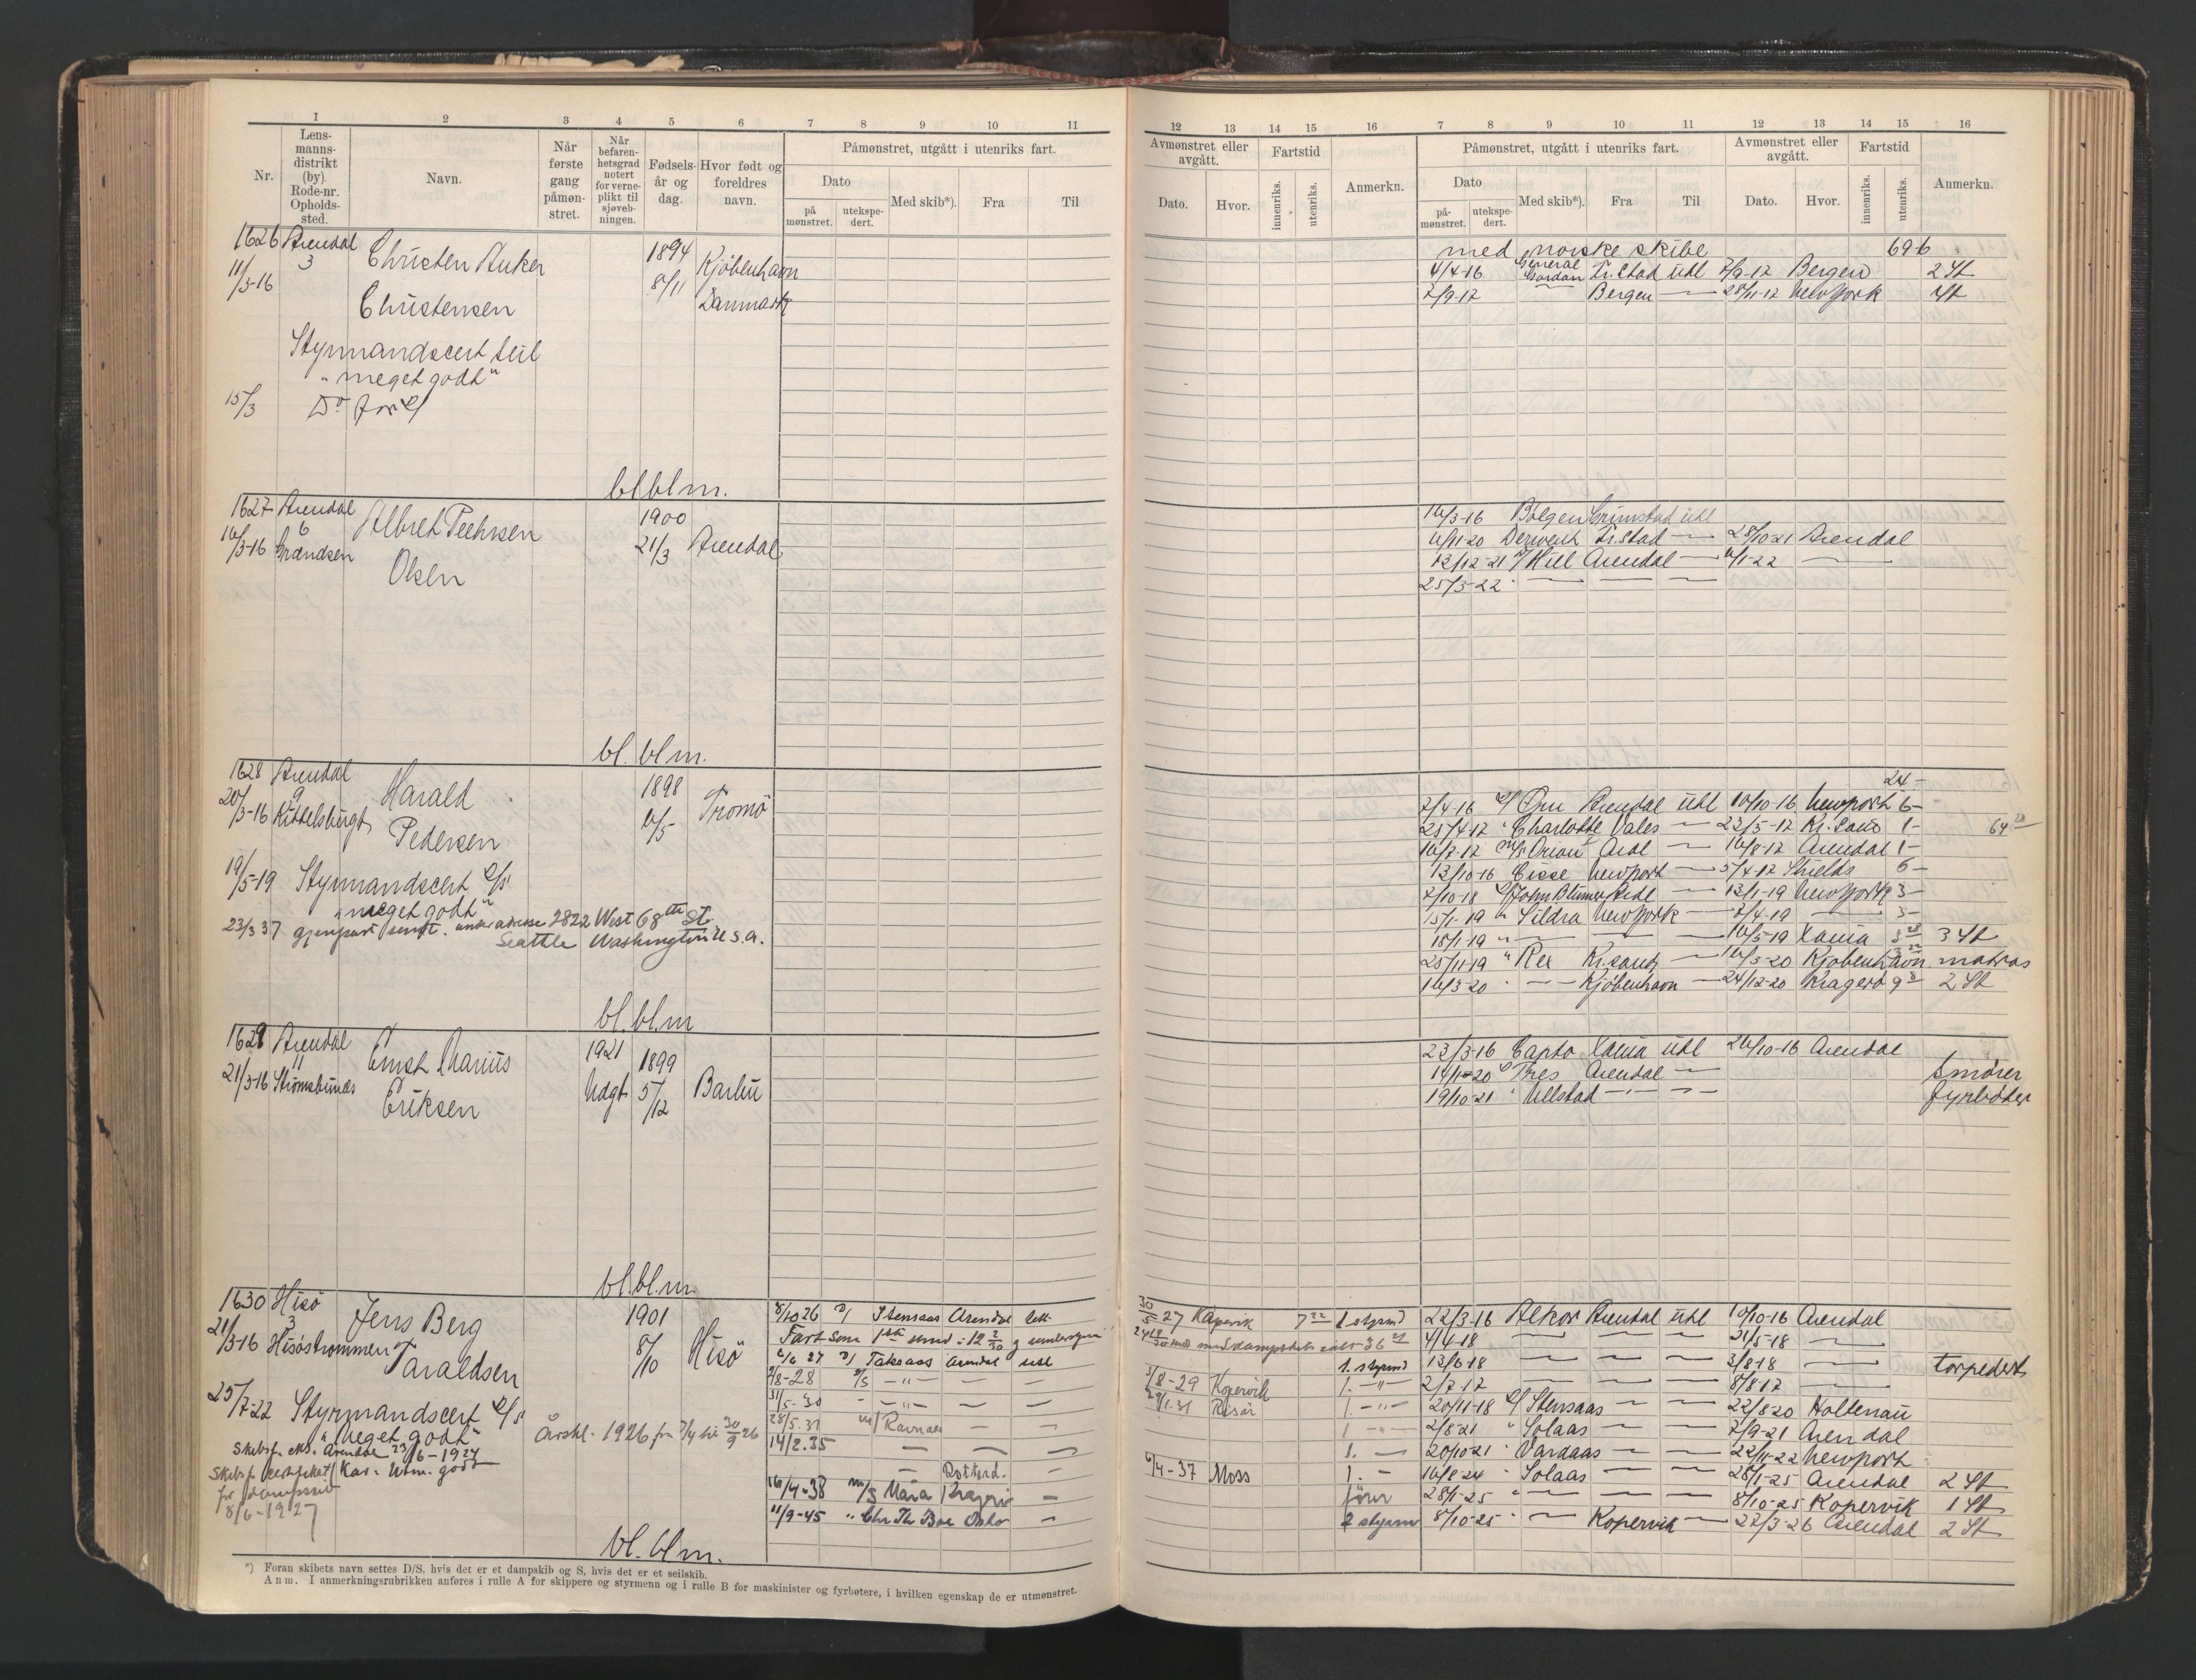 1 2 3 4 5 6 7 8 9 10 11
Nr.
Lens-
manns-
distrikt
(by).
Rode-nr.
Opholds-
sted.
Navn.
Når
første
gang
påmøn-
stret.
Når
befaren-
hetsgrad
notert
for verne-
plikt til
sjøveb-
ningen.
Fødsels-
år og
dag.
Hvor født og
foreldres
navn.
Påmønstret, utgått i utenriks fart.
Dato
på
mønstret.
utekspe-
dert.
Med skib*).
Fra
Til
1626 Arendal
3
11/3-16
Christen Anker
Christensen
1894
8/11
Kjöbenhavn
Danmark
Styrmandscert seil
"meget godt"
15/3 Do for
bl.bl.m.
1627 Arendal
6
16/3-16 Grændsen
Albret Peehrsen
Olsen
1900
21/3 Arendal
bl. bl m.
1628 Arendal
9
20/3-16 Kittelsbugt
Harald
Pedersen
1898
6/5
Tromö
19/5-19 Styrmandscert
"meget godt"
23/3 37 gjenpart sendt. under adresse 2822 West 68th St.
Seattle Washington U.S.A.
bl. bl. m
1629 Arendal
11
21/3-16 Strömsbunes
Ernst Marius
Eriksen
1921
Udgt
1899
5/12
Barbu
bl. bl. m.
1630 Hisö
3
21/3-16 Hisöströmmen
Jens Berg
Taraldsen
1901
8/10
Hisö
25/7-22 Styrmandscert
"Meget godt"
Arendal 23/6-1924
Skibsf. certifikat
8/6-1927
1926 fra 7/4 til 30/9 26
8/10 26 D/ Stensaas Arendal
6/6 27 D/ Taksaas Arendal utl
9/8-28 D/S — " —
31/5-30 — " —
28/5.31 m/ Ravnaas —
14/2.35 —
Rotterd.
16/4-38 m/S Maria Kragerö —
11/9-45 " Chr. Th. Boe Oslo —
bl. bl. m.
*) Foran skibets navn settes D/S, hvis det er et dampskib og S, hvis det er et seilskib.
Anm. I anmerkningsrubrikken anføres i rulle A for skippere og styrmenn og i rulle B for maskinister og fyrbøtere, i hvilken egenskap de er utmønstret.
12 13 14 15 16 7 8 9 10 11 12 13 14 15 16
Avmønstret eller
avgått.
Fartstid
Dato.
Hvor.
innenriks.
utenriks.
Anmerkn.
Påmønstret, utgått i utenriks fart.
Dato
på-
mønstret.
utekspe-
dert.
Med skib*).
Fra
Til
Avmønstret eller
avgått.
Dato.
Hvor.
Fartstid
innenriks.
utenriks.
Anmerkn.
med norske skibe 696
4/4-16 General Gordon Fr.stad utl 7/9-17 Bergen 2 St
7/9-17 — Bergen — 28/11-17 Newyork St
16/3-16 Bölgen Grimstad utl
6/11-20 Derwent Fr.stad — 28/10-21 Arendal
12/12-21 Hill Arendal — 6/1-22 —
25/3-22 — — —
24-
7/4-16 Örn Arendal utl 10/10-16 Newport 6-
25/4-17 Charlotte Vales — 23/5-17 Kr.sand 1-
16/7-17 Orion Aral — 16/8-17 Arendal 1-
13/10-16 Cisse Newport — 5/4-17 Shields 6-
7/10-18 John Blumer Aral — 13/1-19 Newyork 3-
15/1-19 " Sildra Newyork — 7/4-19 — 3-
18/1-19 " — — — 16/5-19 Xania 3 St
25/11-19 " Rex Kr.sand — 16/3-20 Kjöbenhavn matros
16/3-20 — Kjöbenhavn — 24/12-20 Kragerö 2 St
23/3-16 Capto Xania utl 26/10-16 Arendal
14/1-20 Tres Arendal — Smörer
19/10-21 Ullstad — — fyrböter
30/5 27 Kopervik 1 styrmd 22/3-16 Alkor Arendal utl 10/10-16 Arendal
4/4-18 — — — 31/5-18 —
1. styrmd 13/6-18 — — — 3/8-18 — torpedert
3/8-29 Kopervik 1. — " — 2/7-17 — — — 8/8-17 —
29/1.31 Risör 1 — " — 20/11-18 Stensaas — — 22/8-20 Holtenau
1 — " — 2/8-21 " Solaas — — 7/9-21 Arendal
1. — 20/10-21 " Vardaas — — 22/11-22 Newport
6/4-37 Moss 1. — 16/8-24 " Solaas — — 28/1-25 Arendal 2 St
förer 28/1-25 " — — — 8/10-25 Kopervik 1 St
2 styrm 8/10-25 " — Kopervik — 22/3-26 Arendal 2 St